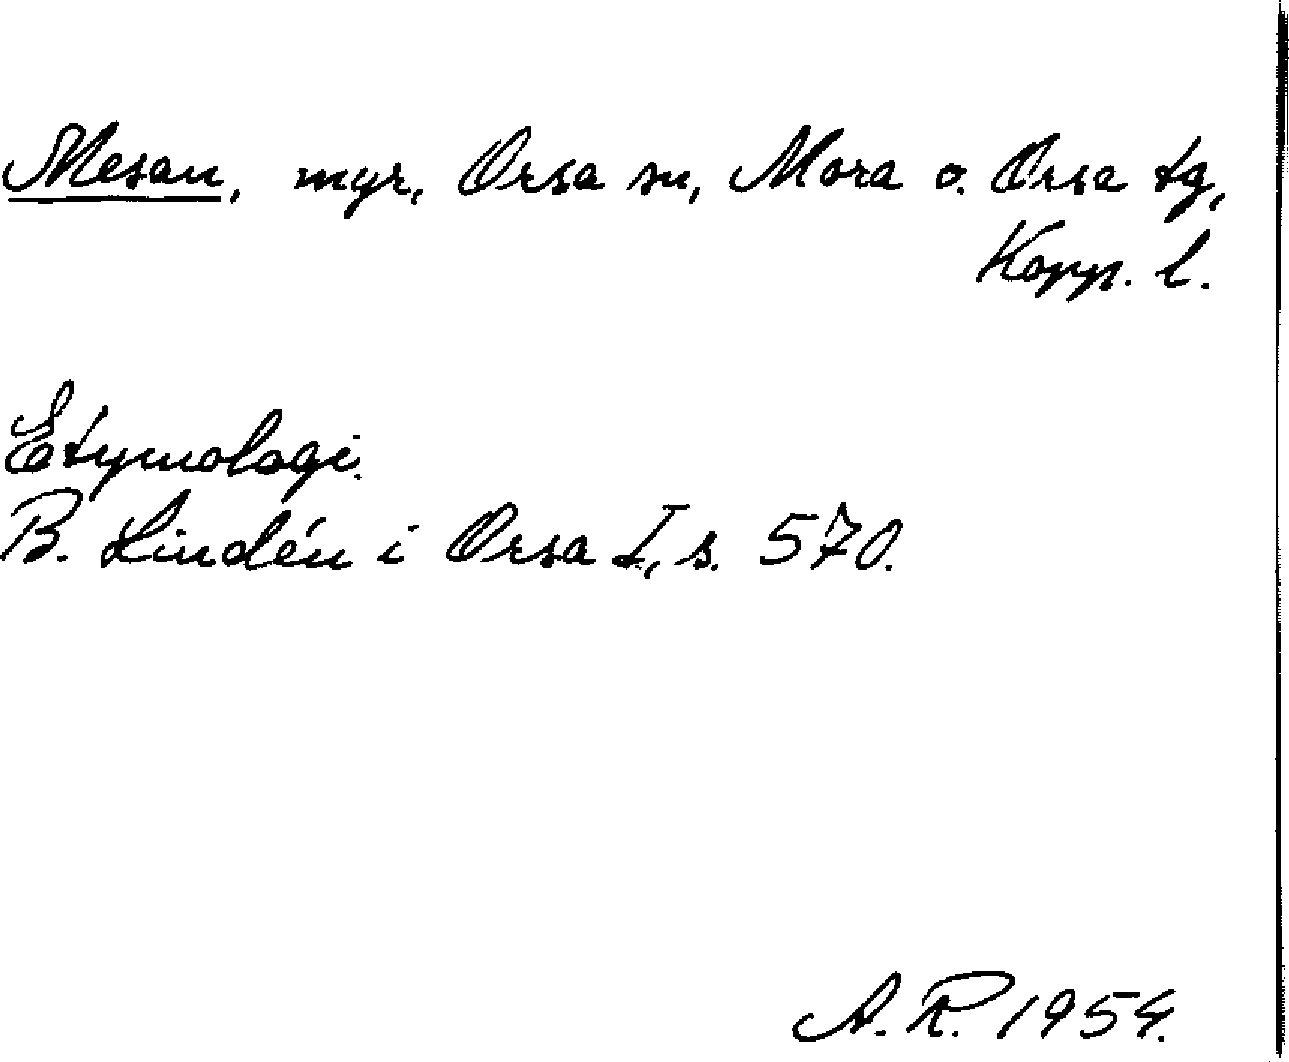 Mesan, myr, Orsa sn, Mora o. Orsa tg,
Kopp. l.
Etymologi.
B. Lindén i Orsa I, s. 570.
A. R. 1954.